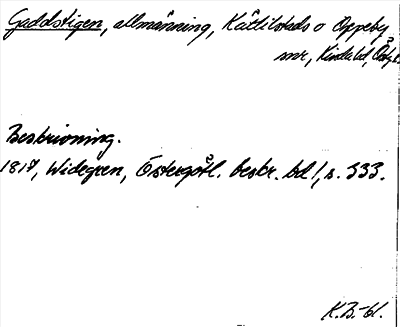 Gaddstigen, allmänning, Kättilstads o Oppeby
snr, Kinda hd, Östg.
Beskrivning.
1817, Widegren, Östergötl. beskr. bd 1, s. 333.
K.B.-bl.